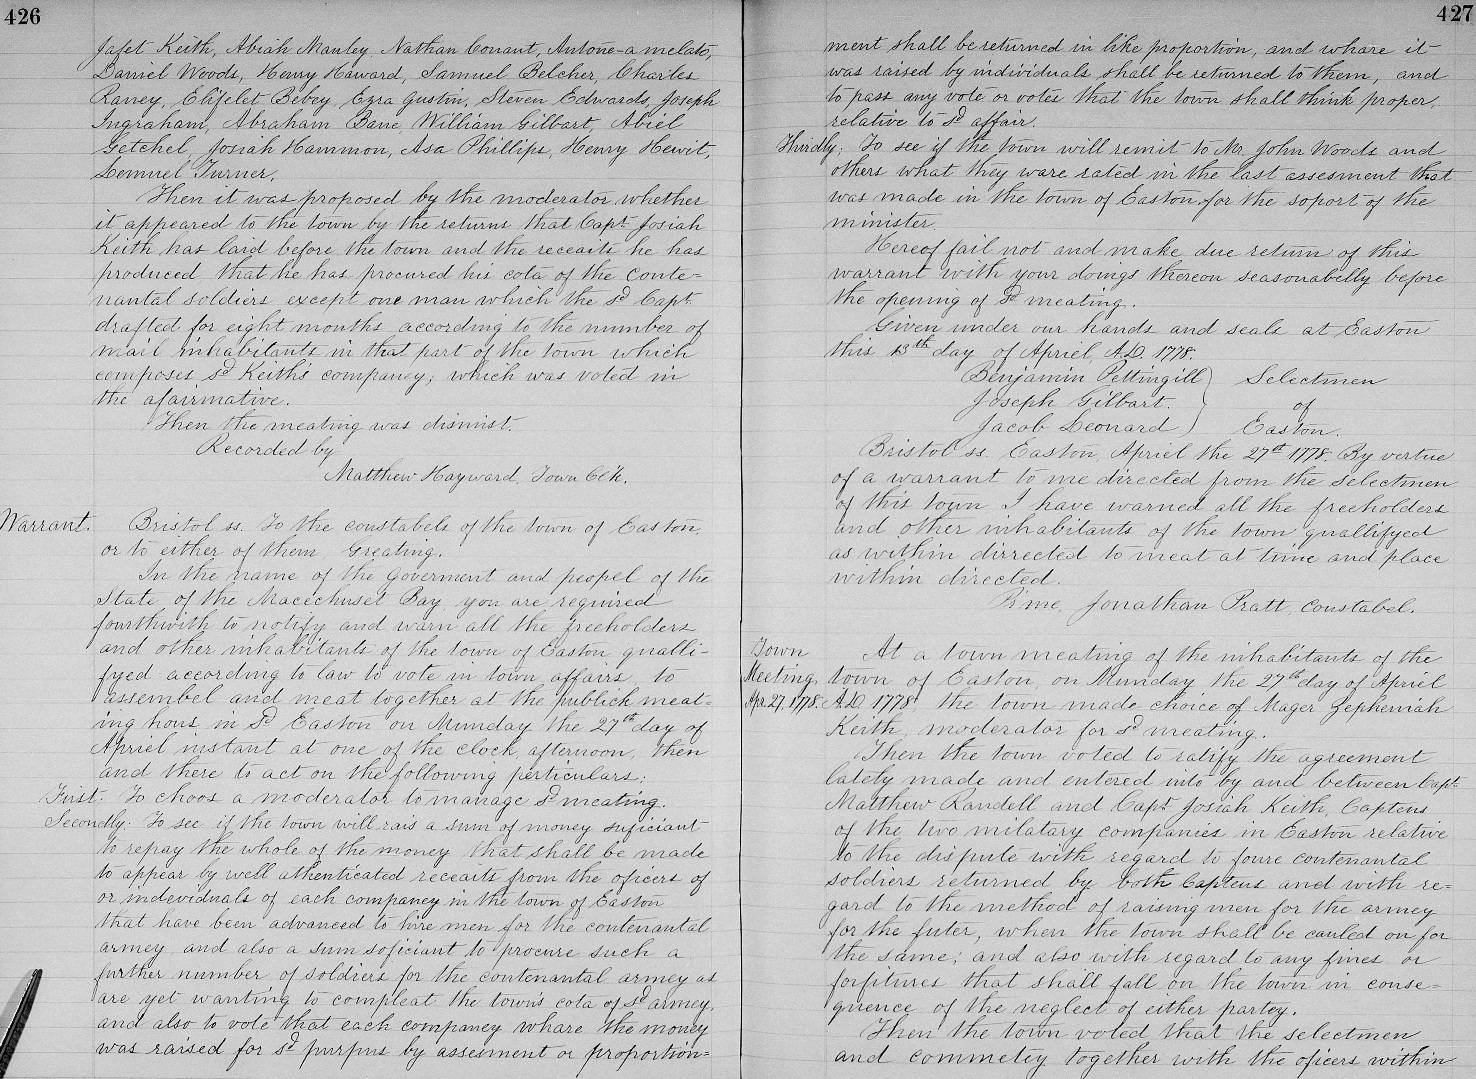 426
Jafet Keith, Abiah Manley, Nathan Conant, Antone-a melato,
Daniel Woods, Henry Haward, Samuel Belcher, Charles
Raney, Elifelet Bebey, Ezra Gustin, Steven Edwards, Joseph
Ingraham, Abraham Bane, William Gilbart, Abiel
Getchel, Josiah Hammon, Asa Phillips, Henry Hewit,
Lemuel Turner.
Then it was proposed by the moderator whether
it appeared to the town by the returns that Capt. Josiah
Keith has laid before the town and the receaits he has
produced that he has procured his cota of the conte=
nantal soldiers except one man which the sd Capt.
drafted for eight months according to the number of
mail inhabitants in that part of the town which
composes sd Keith's company; which was voted in
the afairmative.
Then the meating was dismist.
Recorded by
Matthew Hayward, Town Clk.
Warrant. Bristol ss. To the constabels of the town of Easton,
or to either of them, Greating.
In the name of the Goverment and peopel of the
State of the Macechuset Bay, you are required
fourthwith to notify and warn all the freeholders
and other inhabitants of the town of Easton qualli-
fyed according to law to vote in town affairs, to
assembel and meat together at the publick meat=
ing hous in sd Easton on Munday the 27th day of
Apriel instant at one of the clock, afternoon, then
and there to act on the following perticulars;
First. To choos a moderator to manage sd meating.
Secondly. To see if the town will rais a sum of money suficiant
to repay the whole of the money that shall be made
to appear by well athenticated receaits from the oficers of
or individuals of each company in the town of Easton
that have been advanced to hire men for the contenantal
armey, and also a sum soficiant to procure such a
further number of soldiers for the contenantal armey as
are yet wanting to compleat the town's cota of sd armey,
and also to vote that each company whare the money
was raised for sd purpus by assesment or proportion=
427
ment shall be returned in like proportion, and whare it
was raised by individuals shall be returned to them, and
to pass any vote or votes that the town shall think proper,
relative to sd affair.
Thirdly. To see if the town will remit to Mr. John Woods and
others what they ware rated in the last assesment that
was made in the town of Easton for the soport of the
minister.
Hereof fail not and make due return of this
warrant with your doings thereon seasonabelly before
the opening of sd meating.
Given under our hands and seals at Easton
this 13th day of Apriel, A.D. 1778.
Benjamin Pettingill ) Selectmen
Joseph Gilbart. ) of
Jacob Leonard ) Easton.
Bristol ss. Easton, Apriel the 27th 1778. By vertue
of a warrant to me directed from the selectmen
of this town, I have warned all the freeholders
and other inhabitants of the town quallifyed
as within dirrected to meat at time and place
within directed.
Pr me, Jonathan Pratt, constabel.
Town
Meeting
Apr. 27, 1778.
At a town meating of the inhabitants of the
town of Easton, on Munday the 27th day of Apriel
A.D. 1778, the town made choice of Mager Zepheniah
Keith, moderator for sd meating.
Then the town voted to ratify the agreement
lately made and entered into by and between Capt.
Matthew Randell and Capt. Josiah Keith, Captens
of the two milatary companies in Easton relative
to the dispute with regard to foure contenantal
soldiers returned by both Captens and with re=
gard to the method of raising men for the army
for the futer, when the town shall be cauled on for
the same; and also with regard to any fines or
forfitures that shall fall on the town in conse=
quence of the neglect of either partey.
Then the town voted that the selectmen
and commetey together with the oficers within